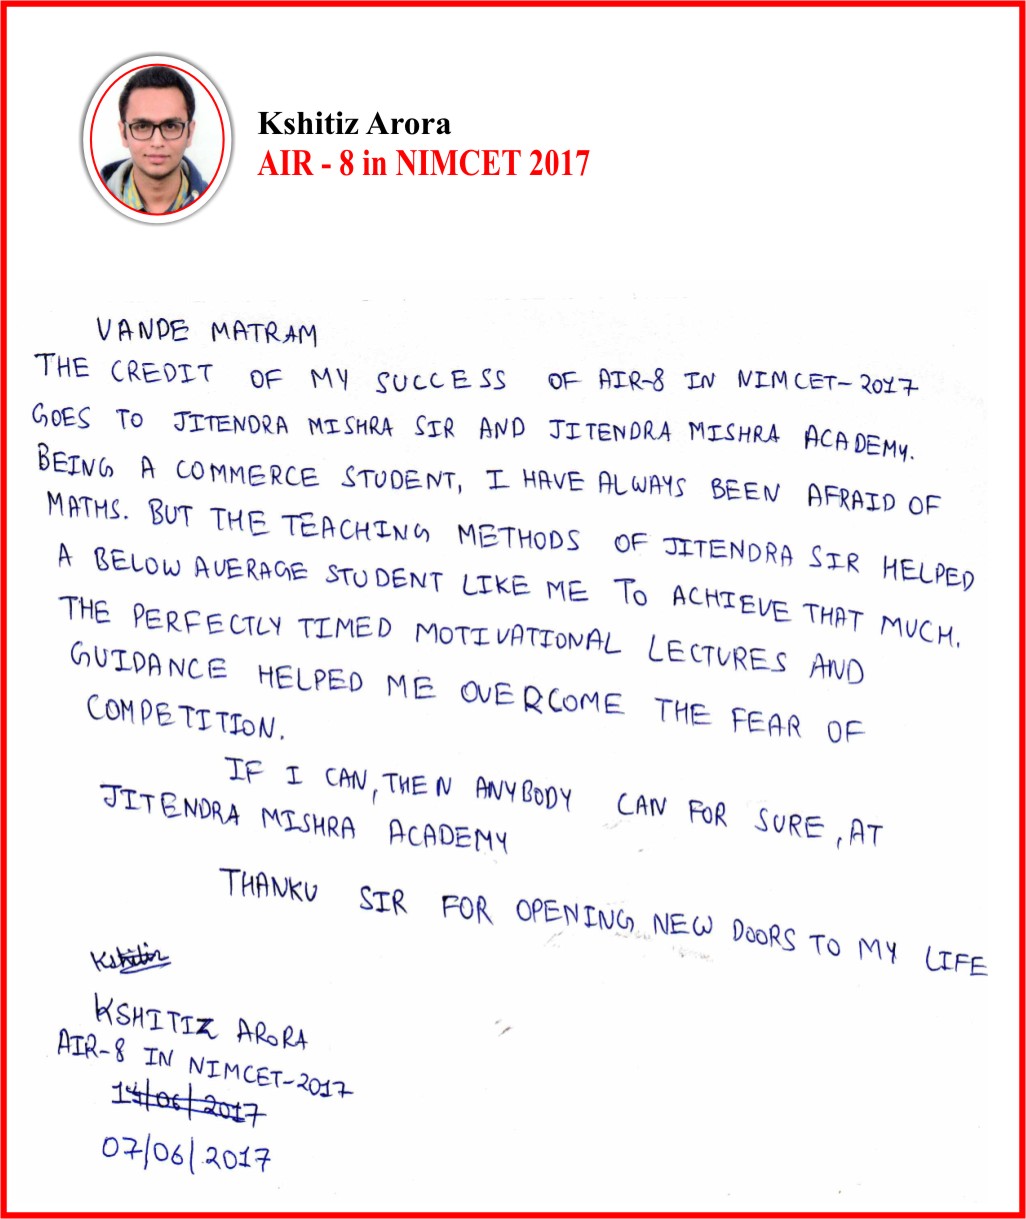 Kshitiz Arora
AIR - 8 in NIMCET 2017
VANDE MATRAM
THE CREDIT OF MY SUCCESS OF AIR-8 IN NIMCET-2017
GOES TO JITENDRA MISHRA SIR AND JITENDRA MISHRA ACADEMY.
BEING A COMMERCE STUDENT, I HAVE ALWAYS BEEN AFRAID OF
MATHS. BUT THE TEACHING METHODS OF JITENDRA SIR HELPED
A BELOW AVERAGE STUDENT LIKE ME TO ACHIEVE THAT MUCH.
THE PERFECTLY TIMED MOTIVATIONAL LECTURES AND
GUIDANCE HELPED ME OVERCOME THE FEAR OF
COMPETITION.
IF I CAN, THEN ANYBODY CAN FOR SURE, AT
JITENDRA MISHRA ACADEMY
THANKU SIR FOR OPENING NEW DOORS TO MY LIFE
Kshitiz
KSHITIZ ARORA
AIR-8 IN NIMCET-2017
14/06/2017
07/06/2017